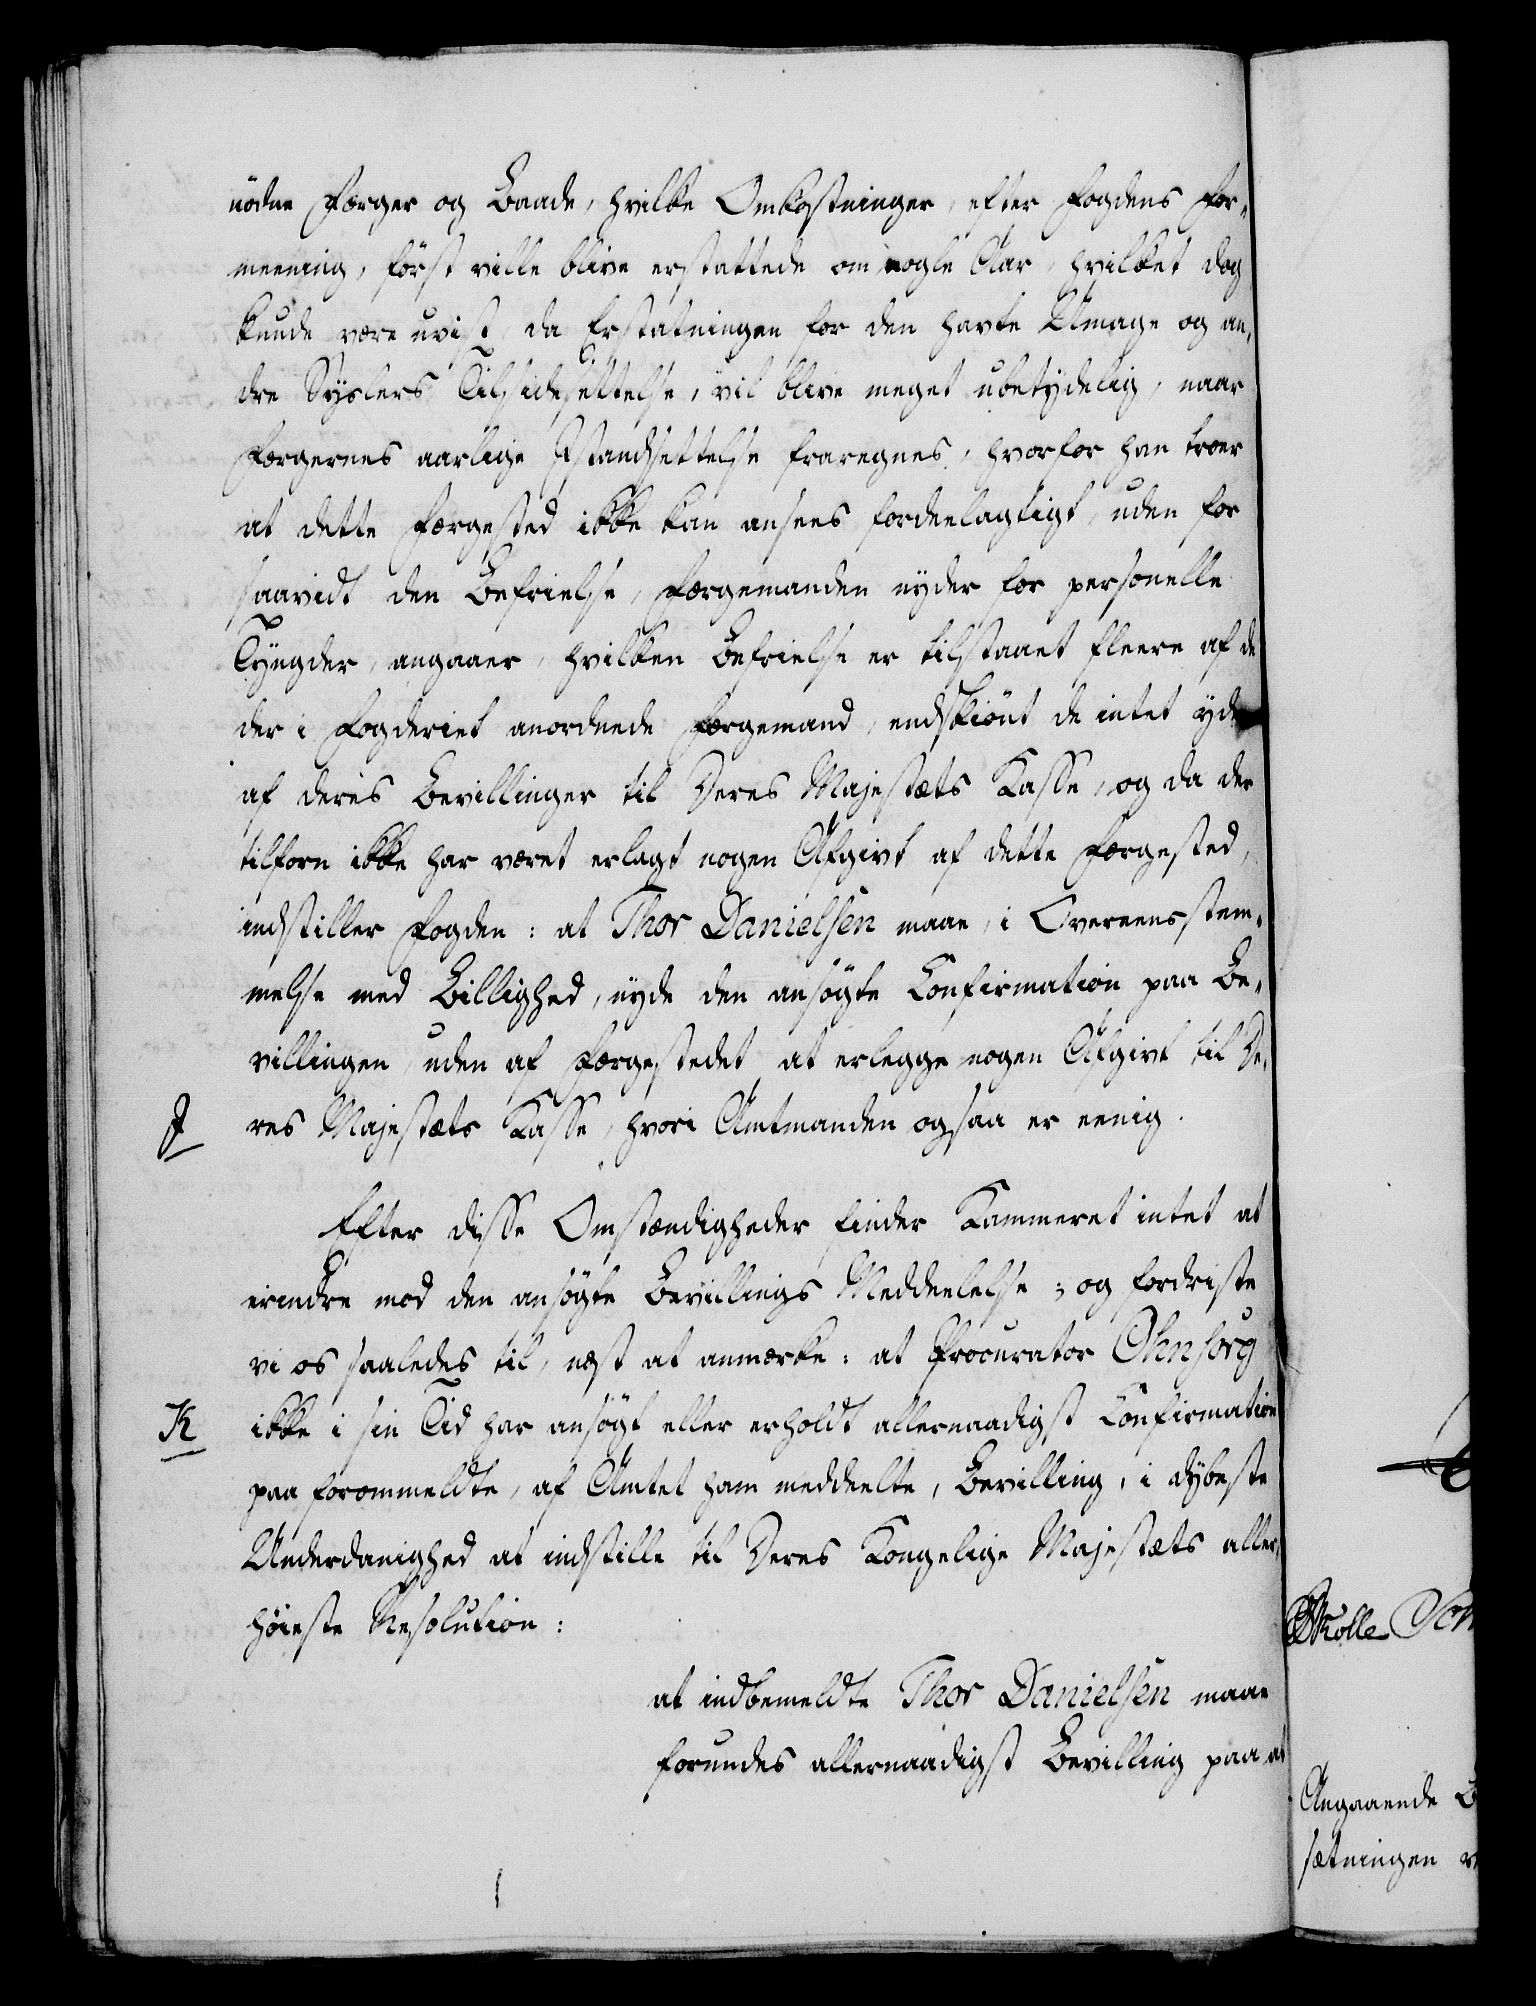 nödne Færger og Baade, hvilke Omkostninger, efter Fogdens For-
meening, först ville blive erstattede om nogle Aar, hvilket dog
kunde være uvist, da Erstatningen for den havte Umage og an-
dre Syslers Tilsidesættelse, vil blive meget ubetydelig, naar
Færgernes aarlige Istandsættelse fraregnes, hvorfor han troer
at dette Færgested ikke kan ansees fordeelagtigt, uden for
saavidt den Befrielse, Færgemanden nyder for personelle
Tyngder, angaaer, hvilken Befrielse er tilstaaet fleere af de
der i Fogderiet anordnede Færgemænd, endskiönt de intet yde
af deres Bevillinger til Deres Majestæts Kasse, og da der
tilforn ikke har været erlagt nogen Afgivt af dette Færgested,
indstiller Fogden: at Thor Danielsen maae, i Overeensstem-
melse med Billighed, nyde den ansögte Confirmation paa Be-
villingen, uden af Færgestedet at erlegge nogen Afgivt til De-
J res Majestæts Kasse, hvori Amtmanden ogsaa er eenig.
Efter disse Omstændigheder finder Kammeret intet at
erindre mod den ansögte Bevillings Meddeelelse; og fordriste
vi os saaledes til, næst at anmærke: at Procurator Ohnsorg
K ikke i sin Tid har ansögt eller erholdt allernaadigst Confirmation
paa forommeldte, af Amtet ham meddeelte, Bevilling, i dybeste
Underdanighed at indstille til Deres Kongelige Majestæts aller-
höieste Resolution:
at indbemeldte Thor Danielsen maae
forundes allernaadigst Bevilling paa at
Angaaende
sætningen